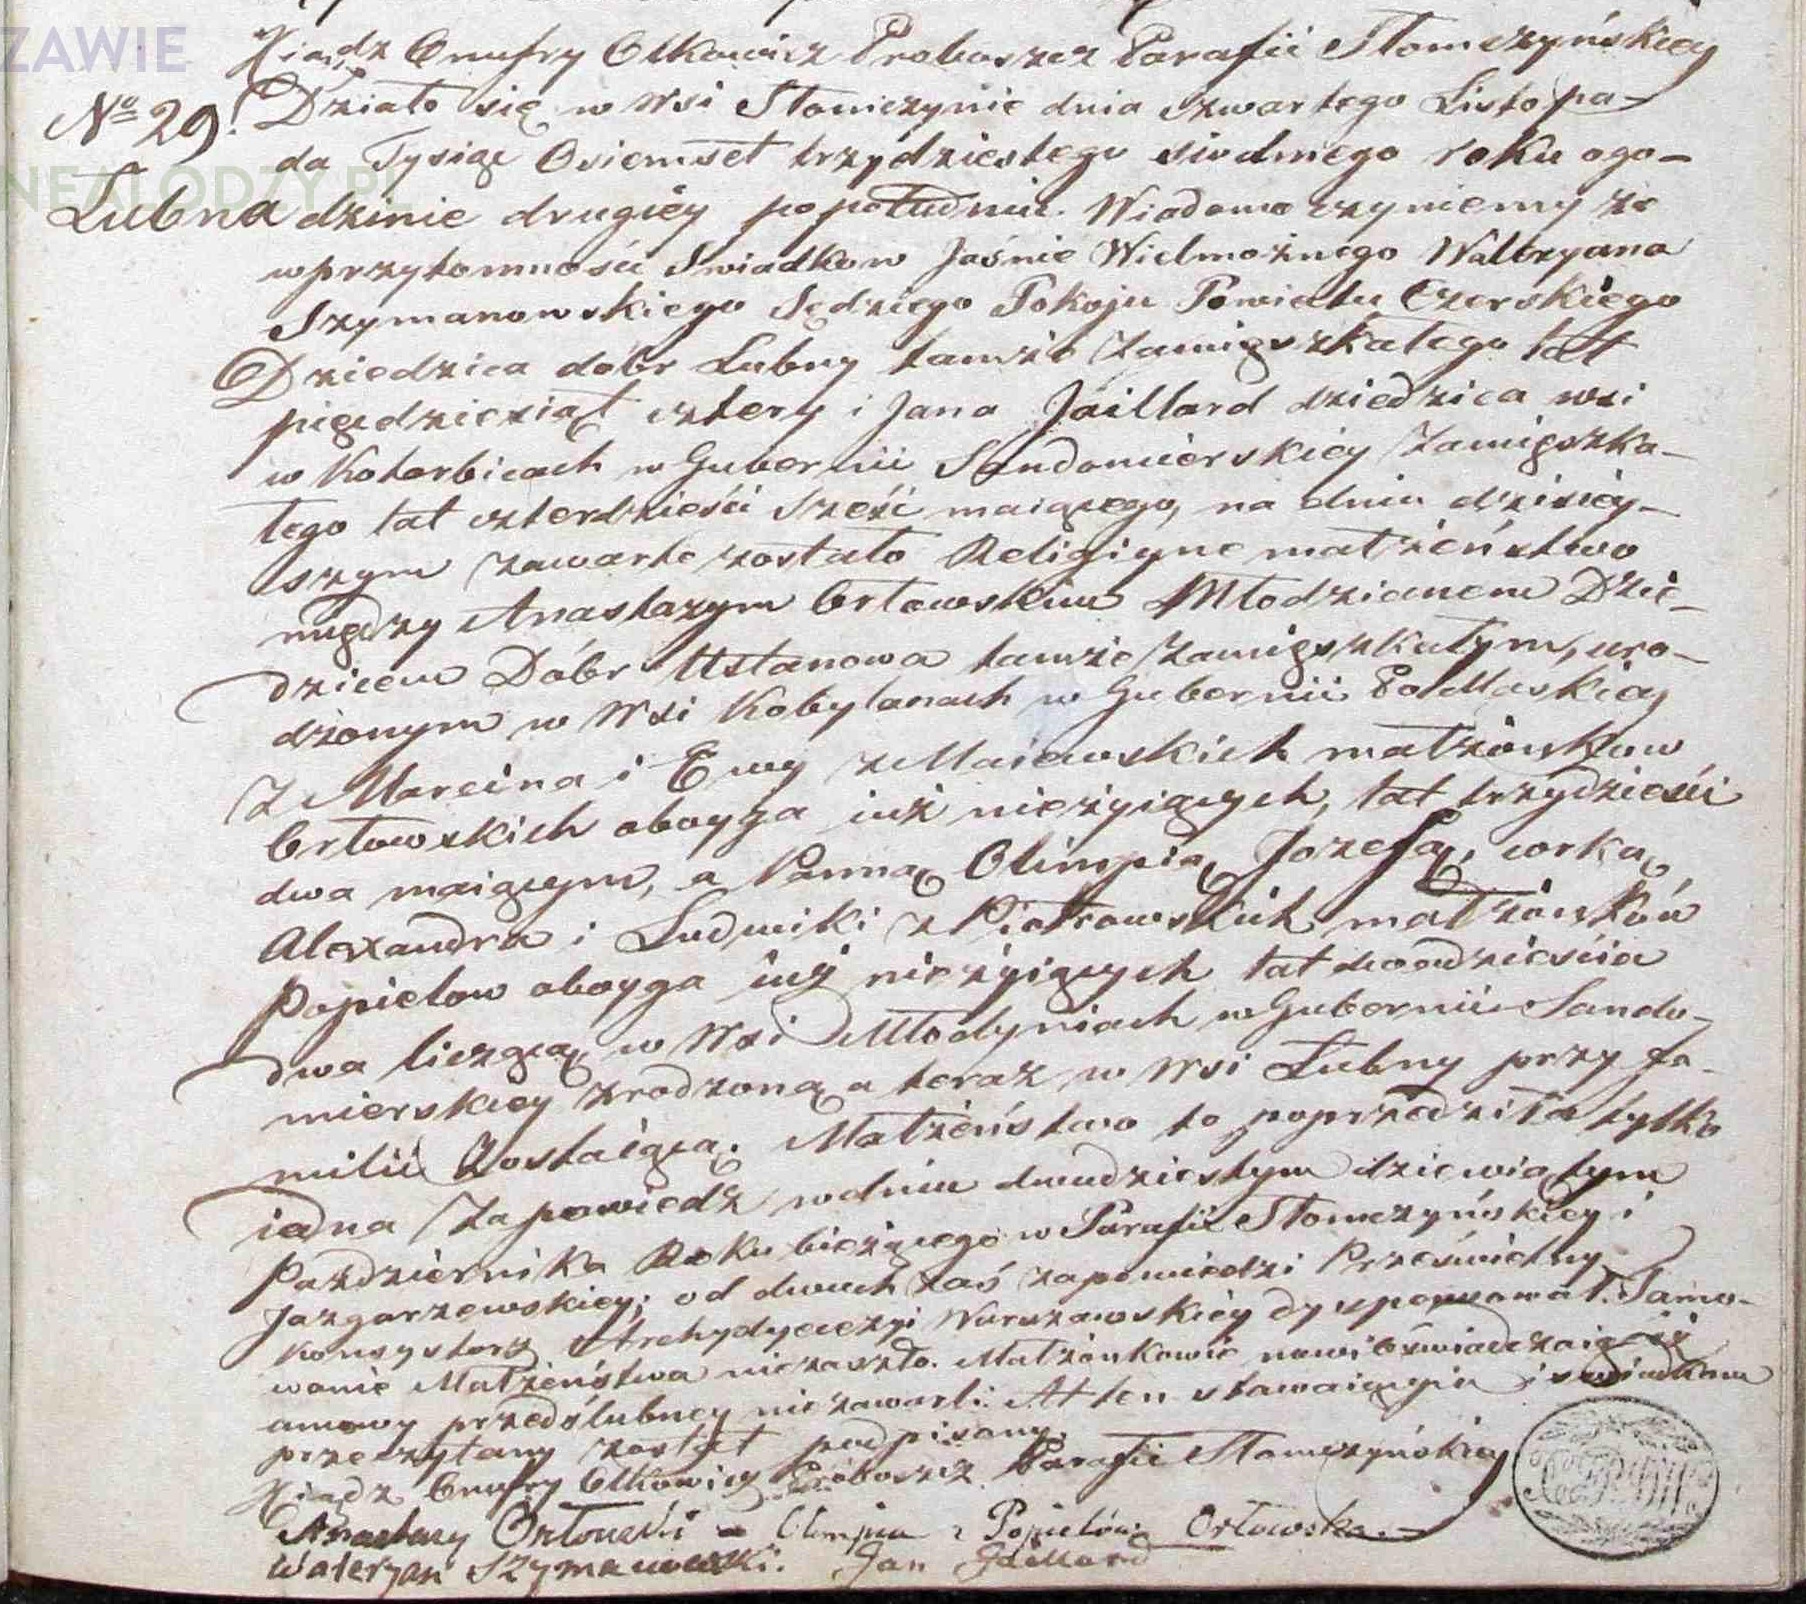 Xiądz Onufry Olkowicz Proboszcz Parafii Słomczyńskiey
No 29. Działo się w Wsi Słomczynie dnia czwartego Listopa-
da Tysiąc Osiemset trzydziestego siodmego roku ogo-
Łubna dzinie drugiey popołudniu. Wiadomo czyniemy że
wprzytomności Swiadkow Jaśnie Wielmożnego Waleryana
Szymanowskiego Sędziego Pokoju Powiatu Czerskiego
Dziedzica dobr Łubny tamże Zamięszkałego lat
pięcdziesiąt cztery i Jana Jaillard dziedzica wsi
w Kotarbicach w Gubernii Sandomierskiey Zamięszka-
łego lat czterdzieści Sześć maiącego, na dniu dzisiey-
szym zawarte zostało Religiyne małżeństwo
między Anastazym Orłowskim Młodzianem Dzie-
dzicem Dóbr Ustanowa tamże Zamięszkałym, uro-
dzonym w Wsi Kobylanach w Gubernii Podlaskiey
Z Marcina i Ewy z Maiewskich małżonkow
Orłowskich oboyga iuż nieżyiących, lat trzydzieści
dwa maiącym, a Panną Olimpią Jozefą, corką
Alexandra i Ludwiki z Piotrowskich małżonków
Popielow oboyga iuż nieżyiących lat dwadzieścia
dwa liczącą w Wsi Młodyniach w Gubernii Sando-
mierskiey zrodzoną a teraz w Wsi Łubny przy fa-
milii Zostaiącą. Małżeństwo to poprzedziła tylko
iedna Zapowiedź wdniu dwudziestym dziewiątym
Pazdziernika Roku bieżącego w Parafii Słomczyńskiey i
Jazgarzewskiey; od dwuch zaś zapowiedzi Prześwietny
Konsystorz Archydyecezyi Warszawskiey dyspensował. Tamo-
wanie Małżeństwa niezaszło. Małżonkowie nowi oświadczaią iż
umowy przedślubney niezawarli. Akt ten stawaiącym i swiadkom
przeczytany został podpisany.
Xiądz Onufry Olkowicz Proboszcz Parafii Słomczyńskiey
Anastazy Orłowski - Olimpia z Popielów Orłowska.
Waleryan Szymanowski. Jan Jaillard
ZAWIE
NEALODZY.PL